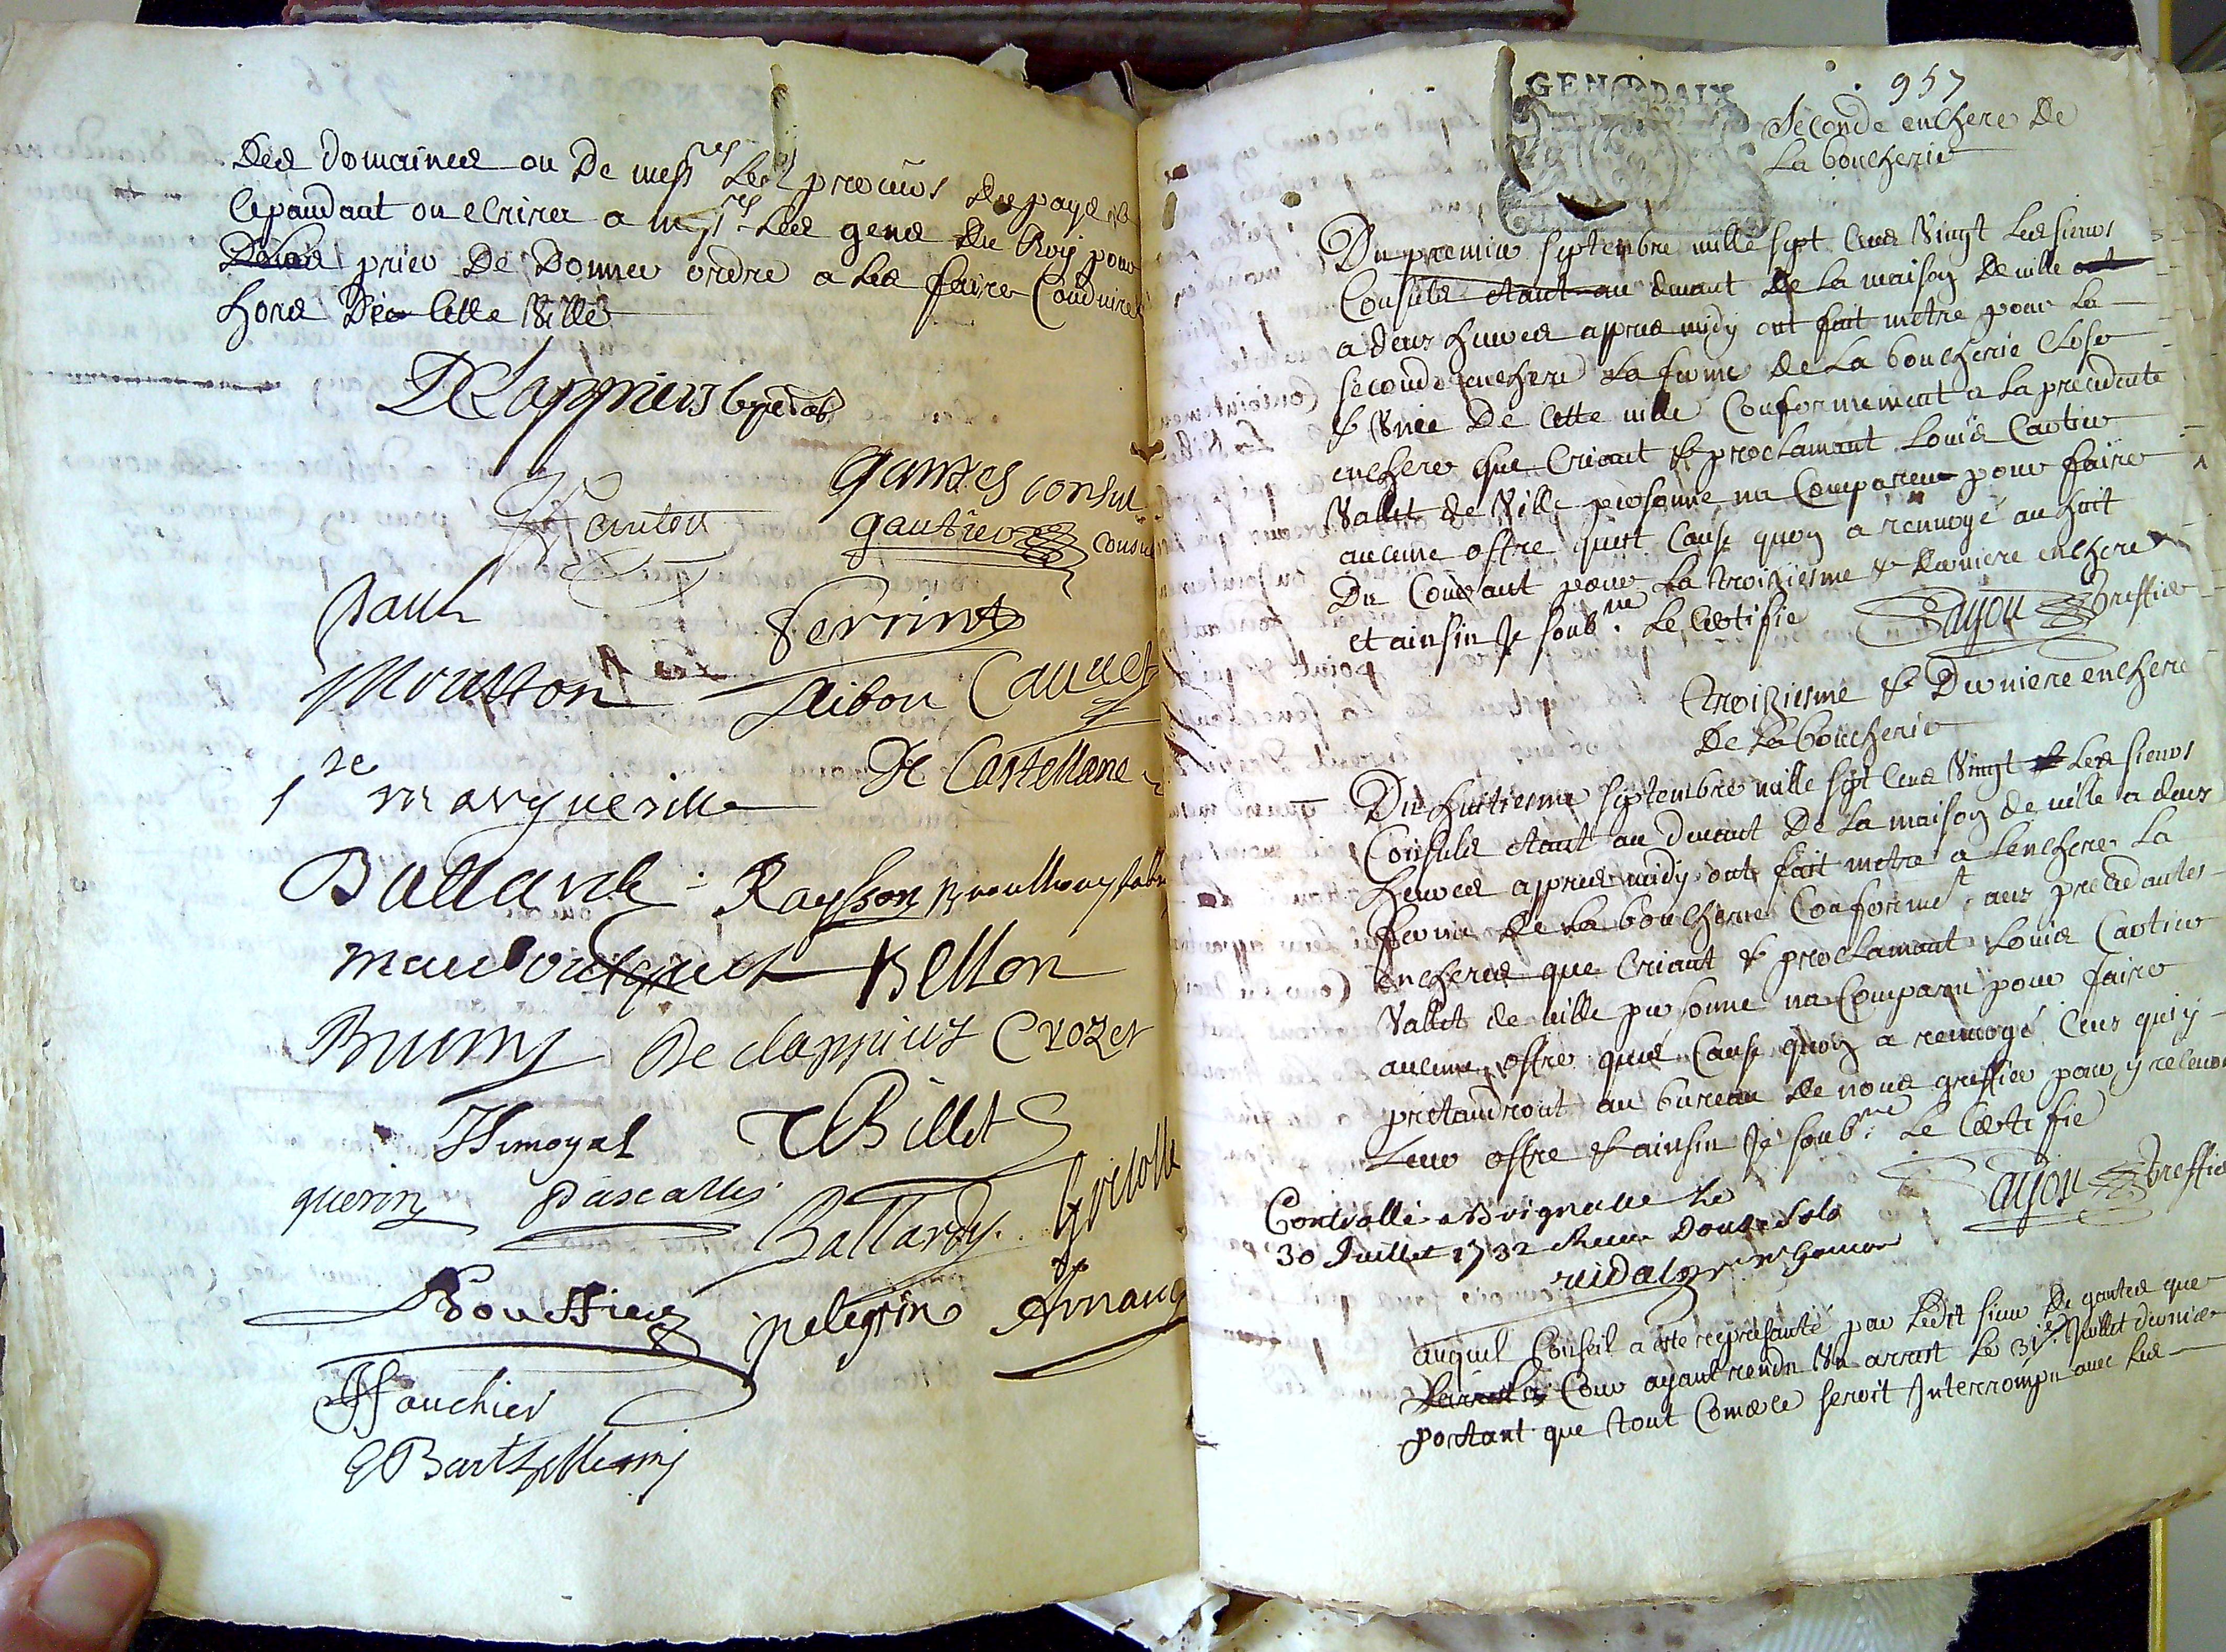 des domaines ou de messrs les procurs du pays &
cepandant on ecrira a messrs les gens du Roy pour
prier de donner ordre a les faire conduire
hors de cette ville
DClappiers
gantes consul
gautier consul
Paul
Perrin
Moutton
Laibon Cauvet
marguerille
De Castellane
Ballardy Raysson
Bellon
Bruny De clappiers Crozet
Simoyal Billet
guerin Pascallis
Ballardy
Bouttier pelegrin Arnaud
Fauchier
Barthellemy
GEN DAIX
957
Seconde enchere de
la boucherie
Du premier septembre mille sept cens vingt les sieurs
Consuls etant au devant de la maison de ville
a deux heures apprès midy ont fait metre pour la
seconde enchere la ferme de la boucherie close
& unie de cette ville conformement a la precedente
enchere que criant & proclamant Louis Cartier
vallet de ville persoune na compareu pour faire
aucune offre quest cause quon a renvoyé au huit
du courant pour la troiziesme & derniere enchere
et ainsin je soubne le certifie Sayou greffier
troiziesme & derniere enchere
de la boucherie
Du huitiesme septembre mille sept cens vingt les sieurs
Consuls etant au devant de la maison de ville a deux
heures apprès midy ont fait metre a lenchere la
ferme de la boucherie conformemt aux precedantes
encheres que criant & proclamant Louis Cartier
vallet de ville persoune na comparu pour faire
aucune offre ques cause quon a renvoyé ceux qui y
pretandront au bureau de nous greffier pour y recevoir
leur offre & ainsin je soubne le certifie
Sayou greffier
Controllé a Brignolle le
30 Juillet 1732 Receu douze sols
auquel Conseil a esté represanté par ledit sieur de gantes que
la Cour ayant rendu un arrest le 31e Juillet dernier
portant que tout comerce seroit Interrompu avec les